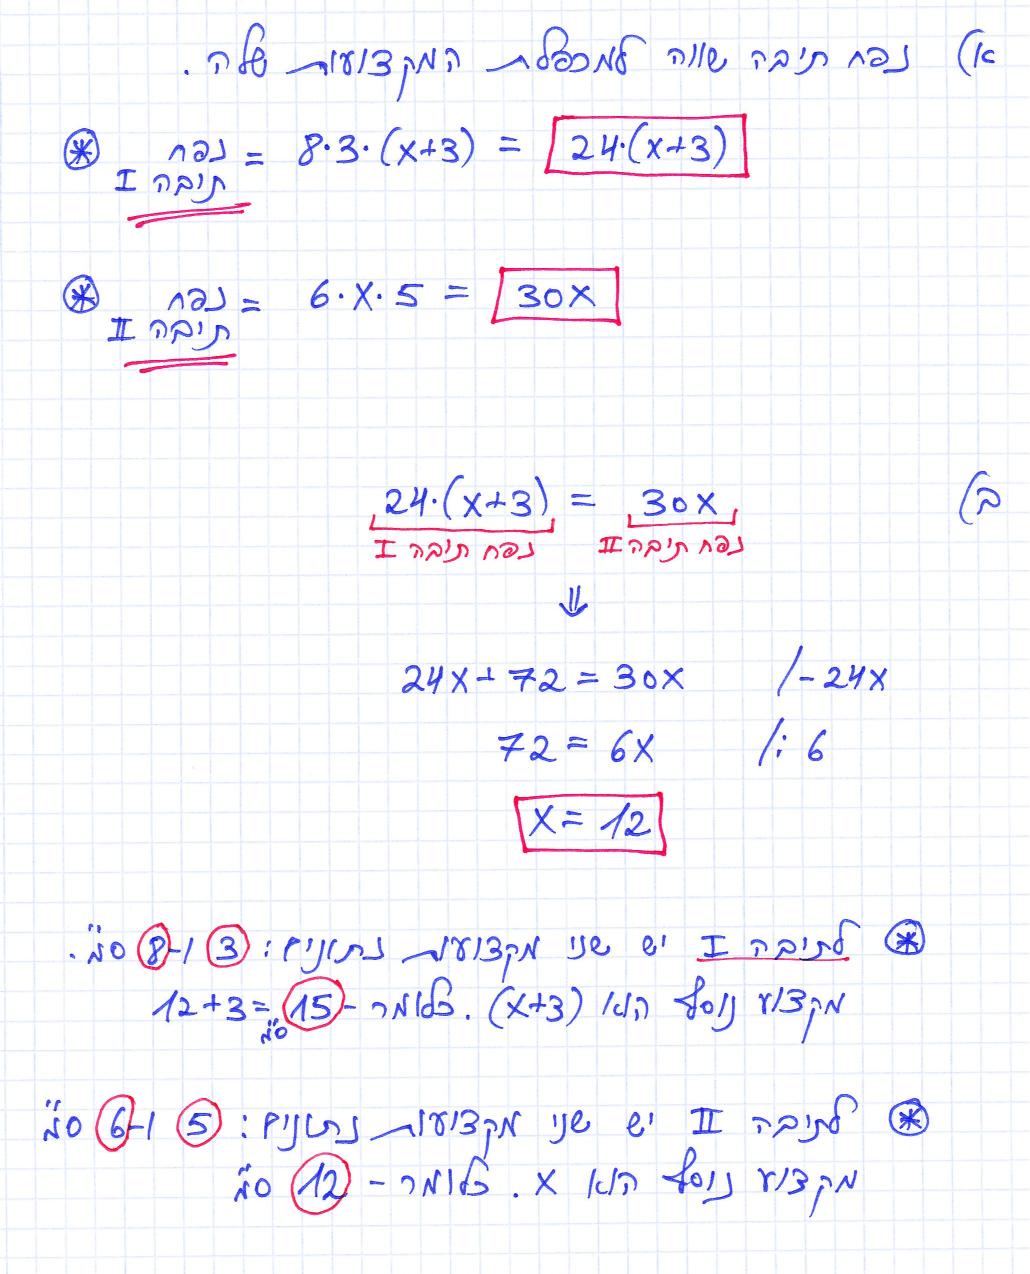 א) נפח תיבה שווה למכפלת המקצועות שלה.
נפח תיבה I = 8·3·(x+3) = 24·(x+3)
נפח תיבה II = 6·x·5 = 30x
ב) 24·(x+3) = 30x
נפח תיבה I נפח תיבה II
⇓
24x+72=30x /-24x
72=6x /:6
x=12
לתיבה I יש שני מקצועות נתונים: 3 ו-8 ס"מ.
מקצוע נוסף הוא (x+3). כלומר - 12+3=15 ס"מ
לתיבה II יש שני מקצועות נתונים: 5 ו-6 ס"מ
מקצוע נוסף הוא x. כלומר - 12 ס"מ